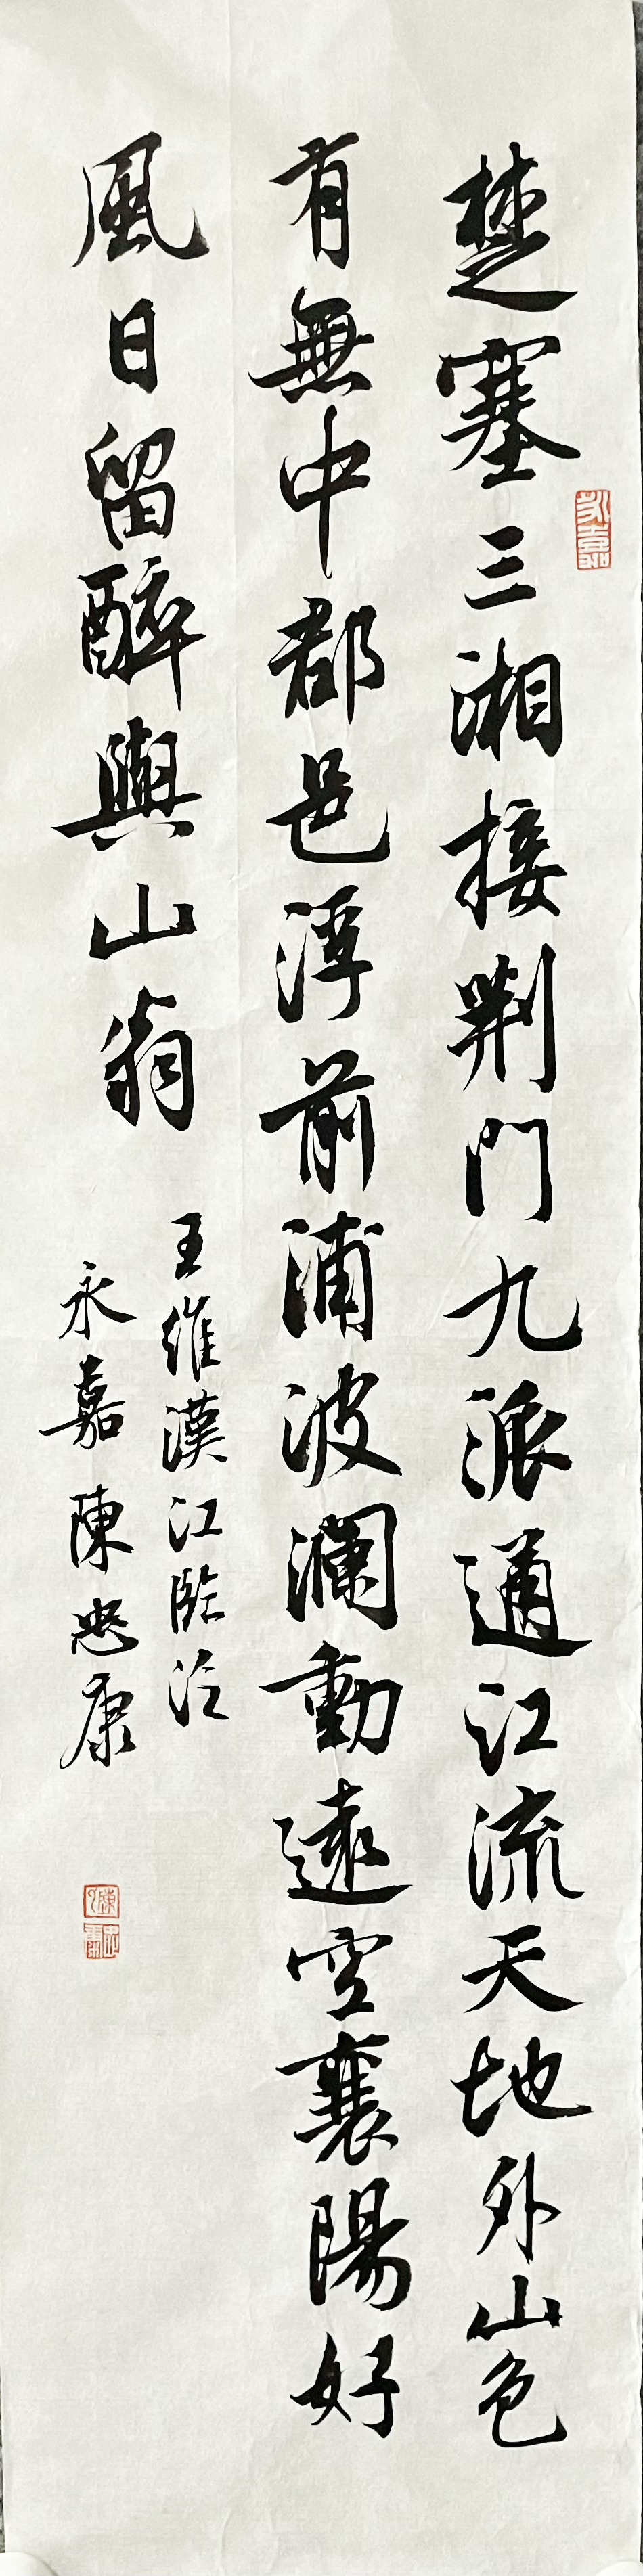 楚塞三湘接荆門九派通江流天地外山色
有無中郡邑浮前浦波瀾動遠空襄陽好
風日留醉與山翁
王維漢江臨泛
永嘉陳忠康
永嘉